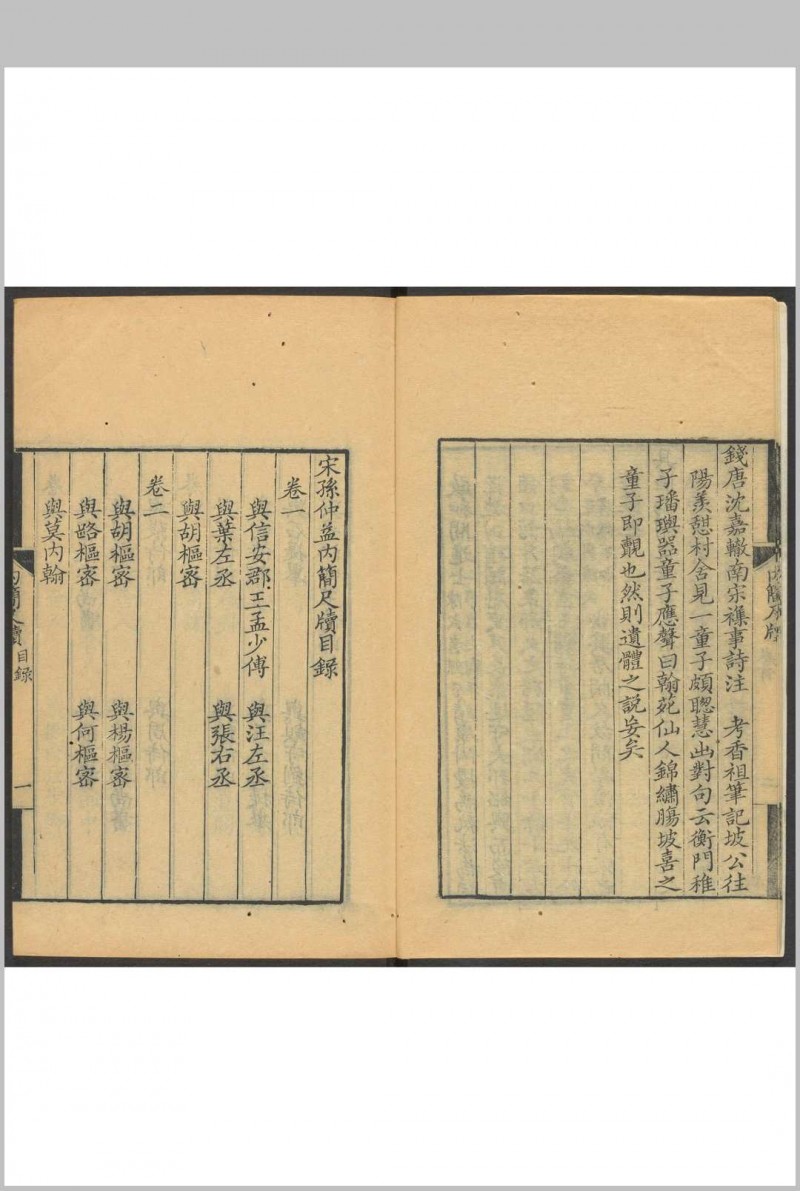 錢唐沈嘉轍南宋襍事詩注 考香祖筆記坡公往
陽羨憇村舍見一童子頗聰慧出對句云衡門稚
子璠璵器童子應聲曰翰苑仙人錦繡腸坡喜之
童子即覿也然則遺體之說妄矣
宋孫仲益內簡尺牘目錄
卷一
與信安郡王孟少傅 與汪左丞
與葉左丞 與張右丞
與胡樞密
卷二
與胡樞密 與楊樞密
與路樞密 與何樞密
與莫內翰
內簡尺牘 目錄 一